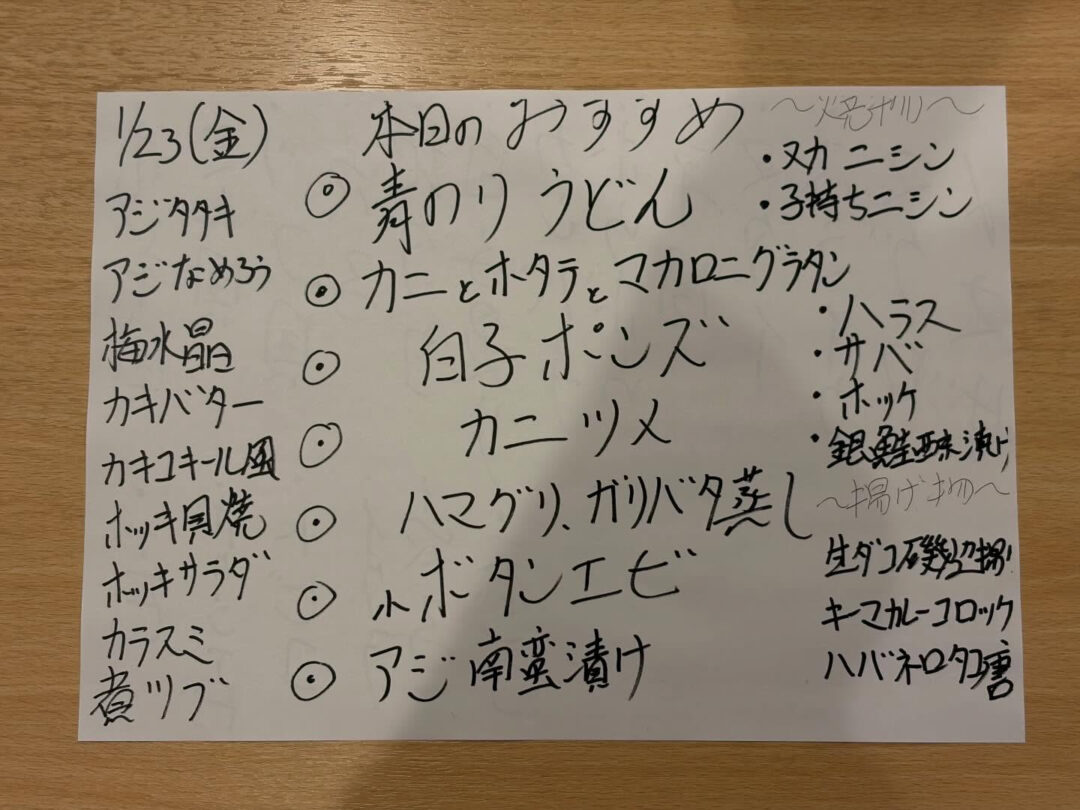 1/23(金)
アジタタキ
アジなめろう
梅水晶
カキバター
カキコキール風
ホッキ貝焼
ホッキサラダ
カラスミ
煮ツブ
本日のおすすめ
◎ 青のりうどん
◎ カニとホタテとマカロニグラタン
◎ 白子ポンズ
◎ カニツメ
◎ ハマグリ、ガリバタ蒸し
◎ 小ボタンエビ
◎ アジ南蛮漬け
〜焼物〜
・ヌカニシン
・子持ちニシン
・ハラス
・サバ
・ホッケ
・銀鮭西京漬け
〜揚げ物〜
生ダコ磯辺揚げ
キーマカレーコロッケ
ハバネロタコ唐